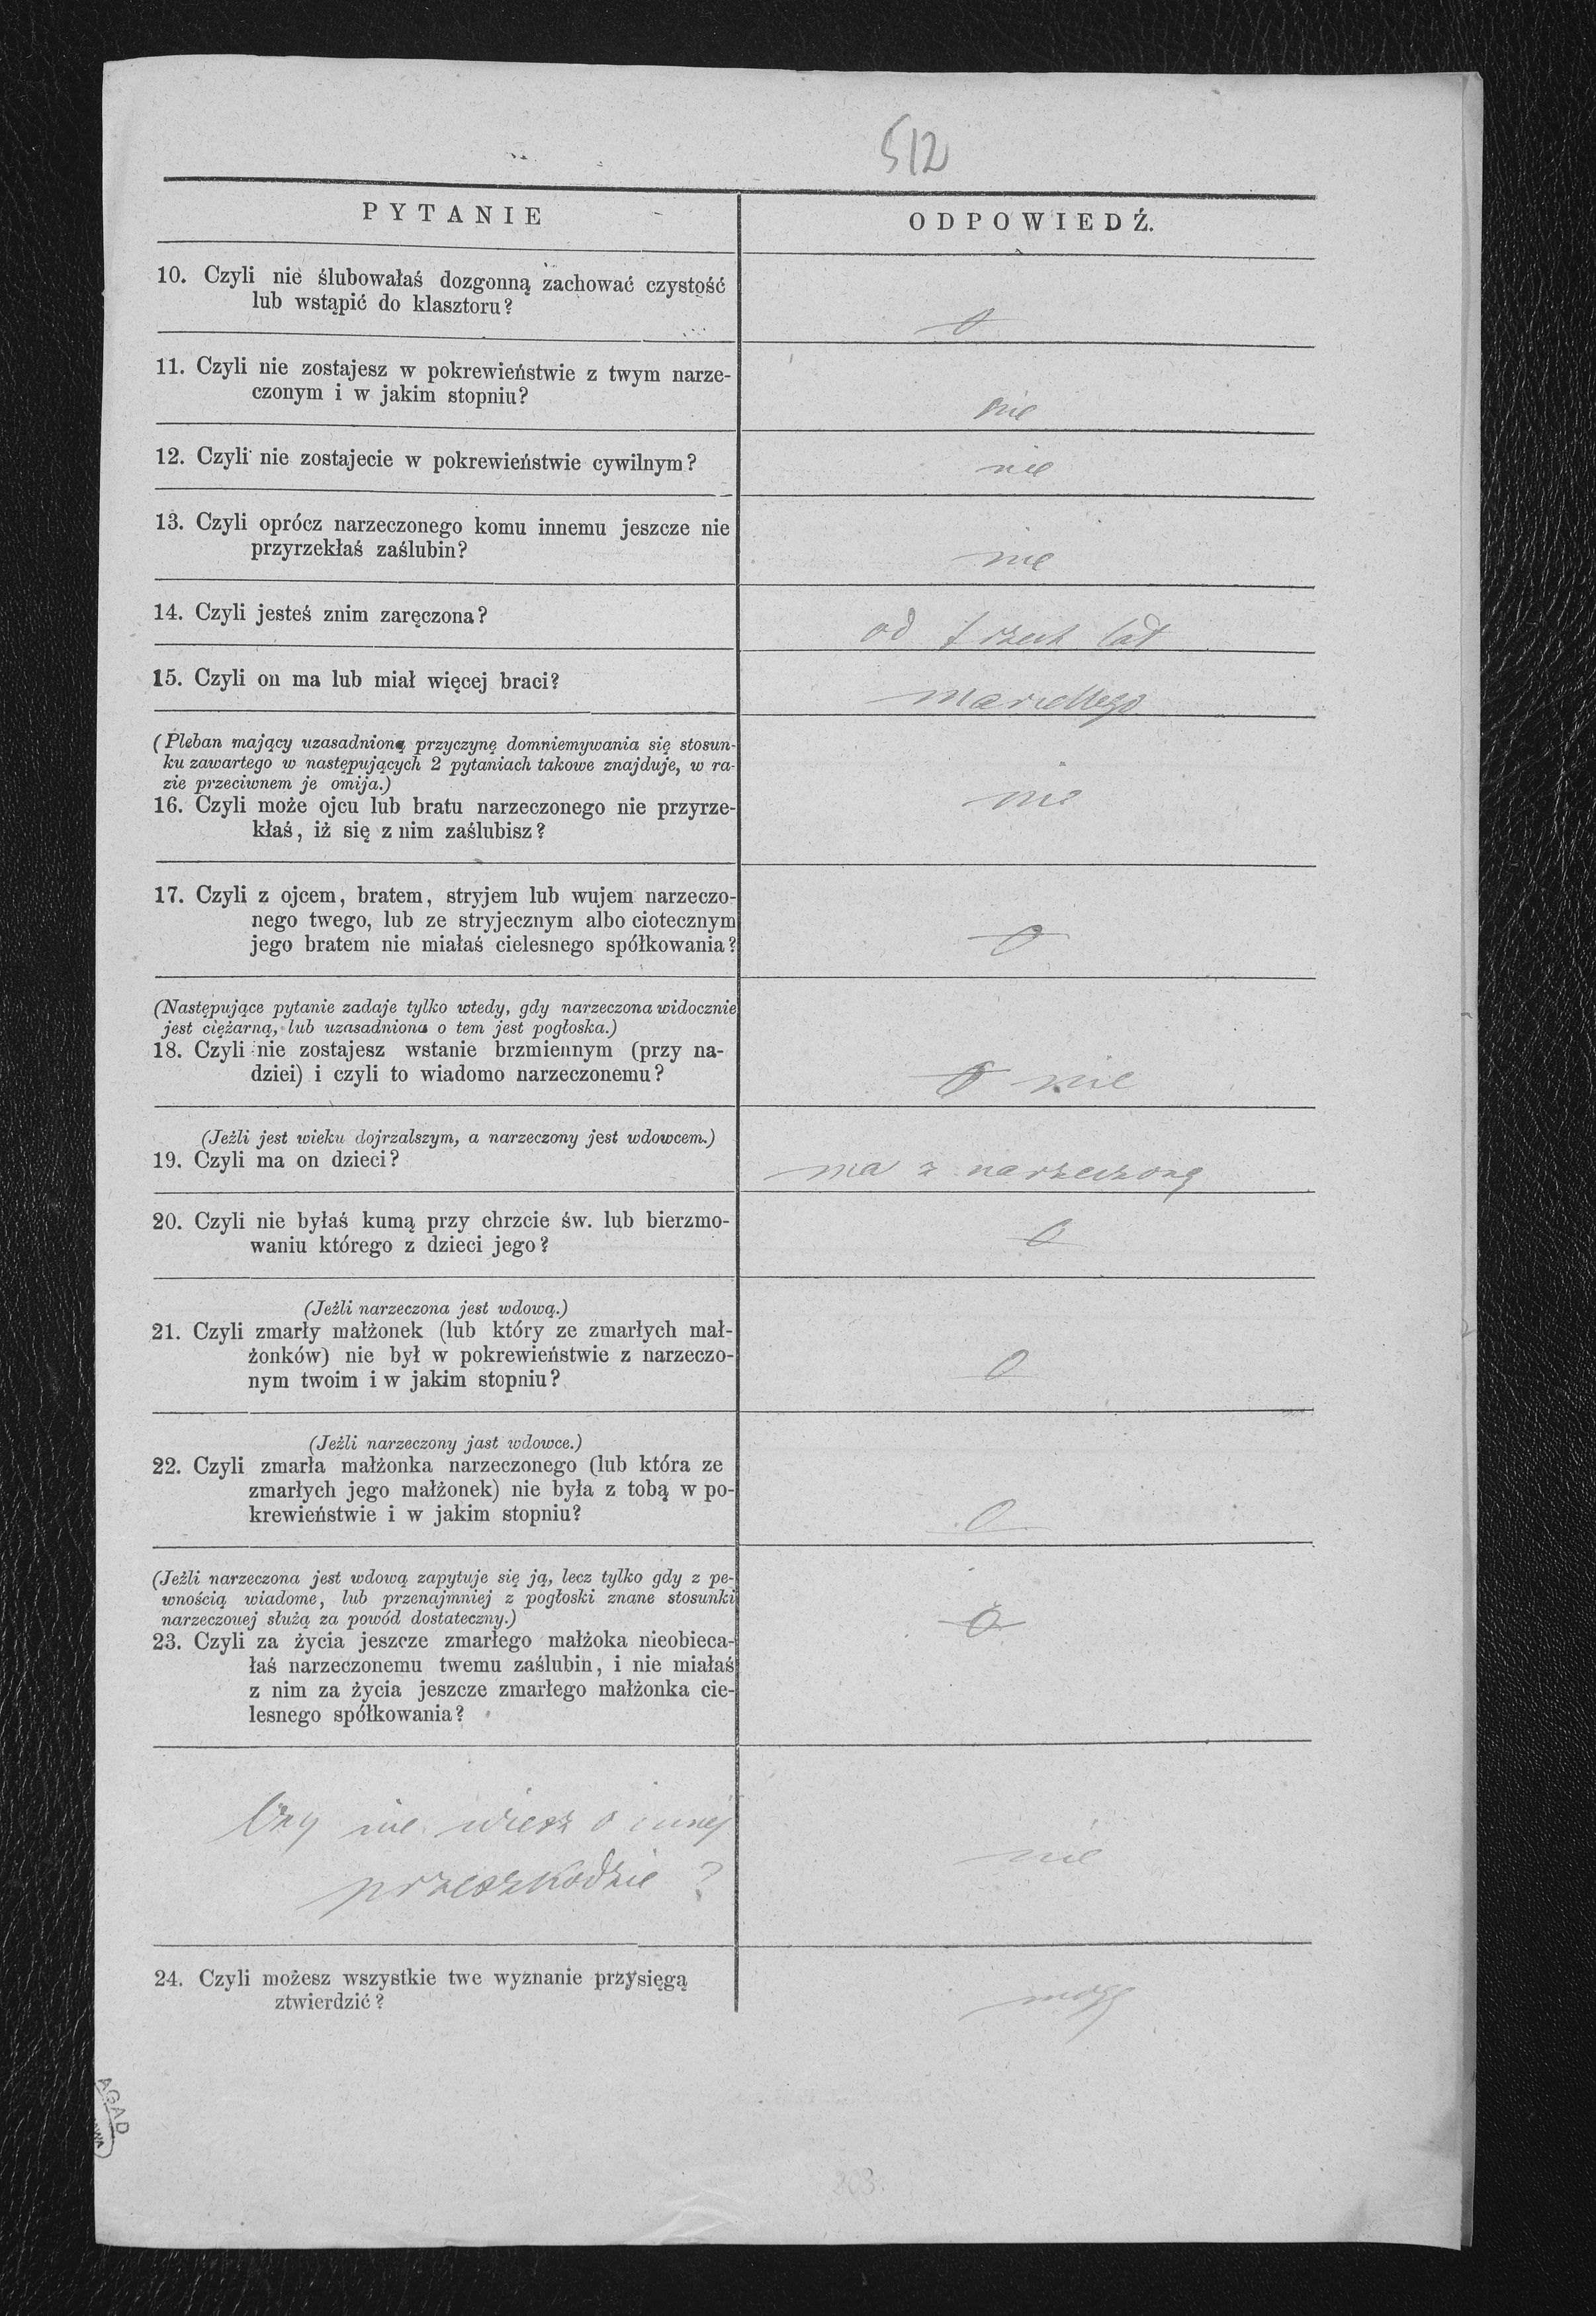 512
PYTANIE
ODPOWIEDŹ.
10. Czyli nie ślubowałaś dozgonną zachować czystość
lub wstąpić do klasztoru?
0
11. Czyli nie zostajesz w pokrewieństwie z twym narze-
czonym i w jakim stopniu?
nie
12. Czyli nie zostajecie w pokrewieństwie cywilnym?
nie
13. Czyli oprócz narzeczonego komu innemu jeszcze nie
przyrzekłaś zaślubin?
nie
14. Czyli jesteś znim zaręczona?
od trzech lat
15. Czyli on ma lub miał więcej braci?
(Pleban mający uzasadnioną przyczynę domniemywania się stosun-
ku zawartego w następujących 2 pytaniach takowe znajduje, w ra-
zie przeciwnem je omija.)
16. Czyli może ojcu lub bratu narzeczonego nie przyrze-
kłaś, iż się z nim zaślubisz?
nie
17. Czyli z ojcem, bratem, stryjem lub wujem narzeczo-
nego twego, lub ze stryjecznym albo ciotecznym
jego bratem nie miałaś cielesnego spółkowania?
0
(Następujące pytanie zadaje tylko wtedy, gdy narzeczona widocznie
jest ciężarną, lub uzasadniona o tem jest pogłoska.)
18. Czyli nie zostajesz wstanie brzmiennym (przy na-
dziei) i czyli to wiadomo narzeczonemu?
0 nie
(Jeźli jest wieku dojrzalszym, a narzeczony jest wdowcem.)
19. Czyli ma on dzieci?
ma z narzeczoną
20. Czyli nie byłaś kumą przy chrzcie św. lub bierzmo-
waniu którego z dzieci jego?
0
(Jeźli narzeczona jest wdową.)
21. Czyli zmarły małżonek (lub który ze zmarłych mał-
żonków) nie był w pokrewieństwie z narzeczo-
nym twoim i w jakim stopniu?
0
(Jeźli narzeczony jast wdowce.)
22. Czyli zmarła małżonka narzeczonego (lub która ze
zmarłych jego małżonek) nie była z tobą w po-
krewieństwie i w jakim stopniu?
0
(Jeźli narzeczona jest wdową zapytuje się ją, lecz tylko gdy z pe-
wnością wiadome, lub przenajmniej z pogłoski znane stosunki
narzeczouej służą za powód dostateczny.)
23. Czyli za życia jeszcze zmarłego małżoka nieobieca-
łaś narzeczonemu twemu zaślubin, i nie miałaś
z nim za życia jeszcze zmarłego małżonka cie-
lesnego spółkowania?
0
Czy nie wiesz o innej
przeszkodzie?
nie
24. Czyli możesz wszystkie twe wyznanie przysięgą
ztwierdzić?
mogę
AGAD